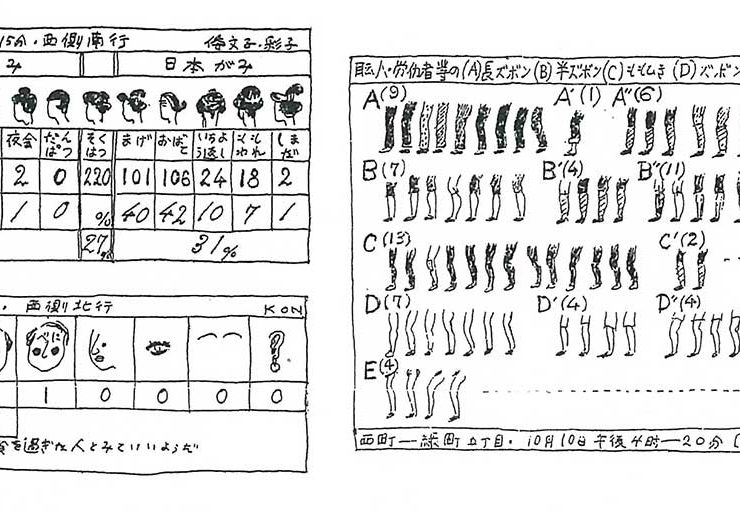 15分・西側南行
み 日本がみ
夜会 だんぱつ そくはつ まげ おばこ いちょう返し ももわれ しまだ
2 0 220 101 106 24 18 2
1 0 % 40 42 10 7 1
27% 31%
西側北行 KON
べに
?
1 0 0 0 0
を過ぎた人とみていいようだ
小・労働者等の(A)長ズボン(B)半ズボン(C)ももひき(D)ズボン
A(9) A'(1) A''(6)
B(7) B'(4) B''(11)
C(13) C'(2)
D(7) D'(4) D''(4)
E(4)
西町—緑町五丁目・10月10日午後4時—20分